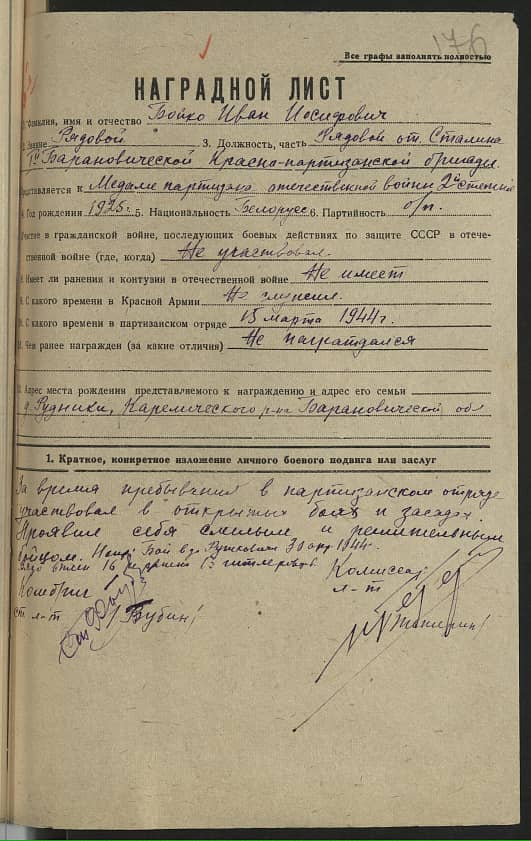 176
Все графы заполнять полностью
НАГРАДНОЙ ЛИСТ
1. Фамилия, имя и отчество Бойко Иван Иосифович
2. Звание Рядовой 3. Должность, часть Рядовой от. Сталина
1й Барановической Красно-партизанской бригады
Представляется к Медали партизана отечественной войны 2й степени
4. Год рождения 1925г. 5. Национальность Белорусс 6. Партийность б/п.
Участие в гражданской войне, последующих боевых действиях по защите СССР в отече-
ственной войне (где, когда) Не участвовал.
8. Имеет ли ранения и контузии в отечественной войне Не имеет
9. С какого времени в Красной Армии Не служил.
10. С какого времени в партизанском отряде 15 марта 1944г.
11. Чем ранее награжден (за какие отличия) Не награждался
12. Адрес места рождения представляемого к награждению и адрес его семьи
д. Рудники, Карелического р-на Барановической обл
1. Краткое, конкретное изложение личного боевого подвига или заслуг
За время пребывания в партизанском отряде
участвовал в открытых боях и засадах.
Проявил себя смелым и решительным
бойцом. Бой в д. 30 апр. 1944г.
16 13 гитлеровцев.
Комиссар
Комбриг л-т
ст. л-т Бубин/